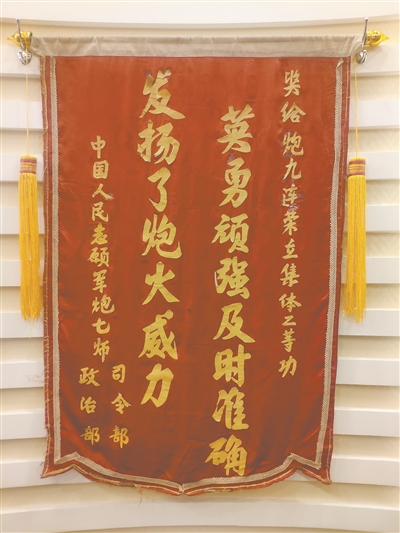 奖给炮九连荣立集体二等功
英勇顽强及时准确
发扬了炮火威力
中国人民志愿军炮七师
司令部
政治部